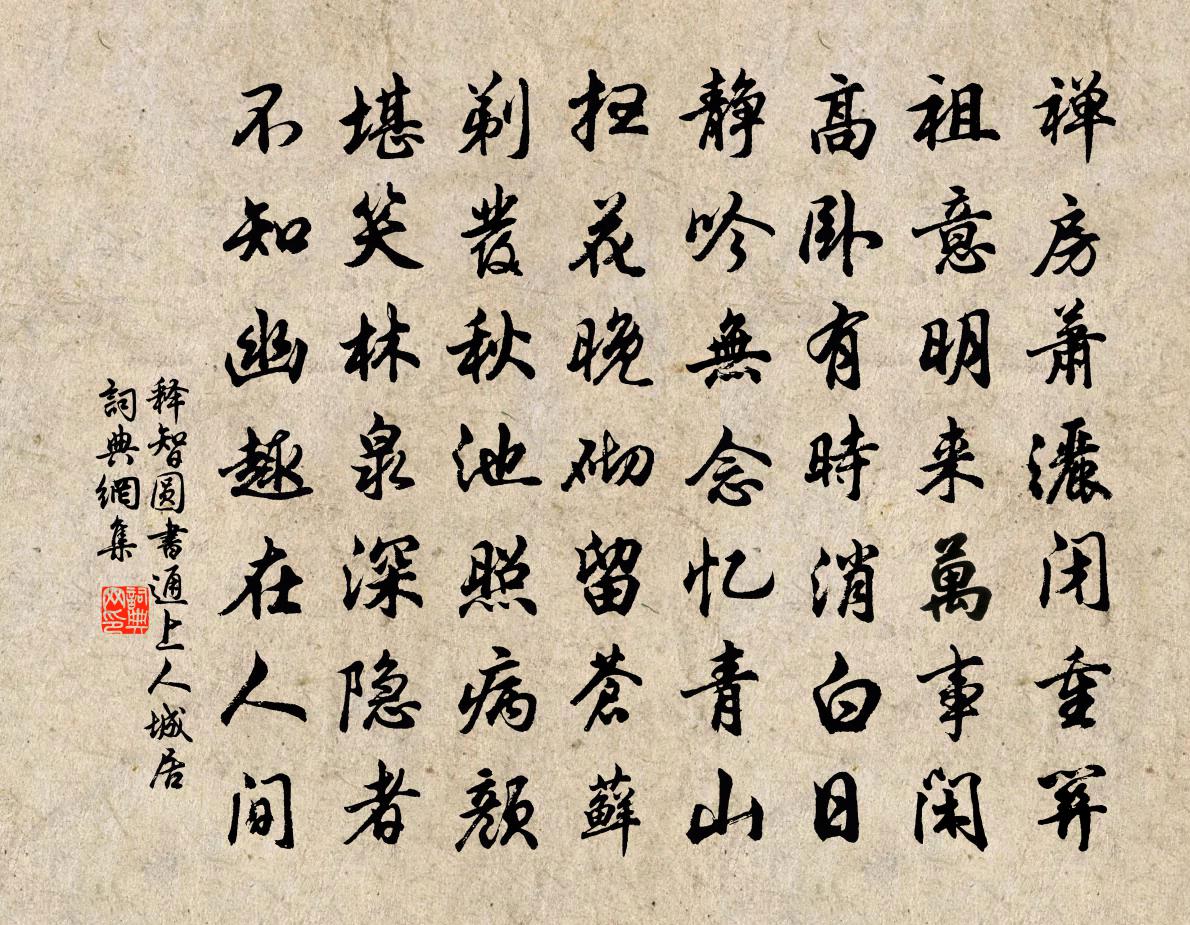 禅房萧灑闭重关
祖意明来萬事闲
高卧有時消白日
静吟無念忆青山
扫花晚砌留苍藓
剃发秋池照病颜
堪笑林泉深隐者
不知幽趣在人间
释智圆書通上人城居
詞典網集
詞典网印